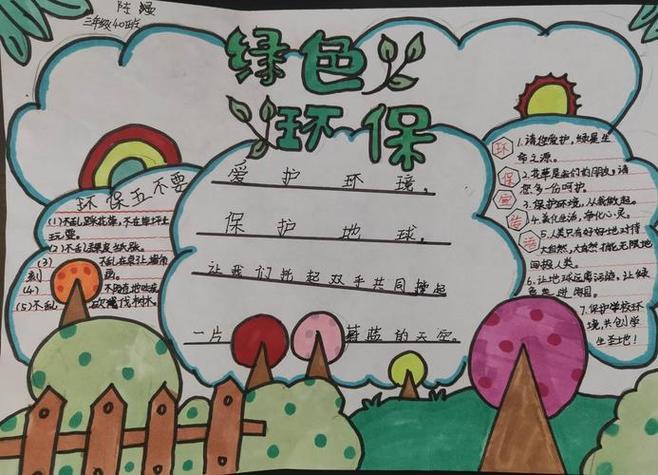 陆
三年级40班
绿色
环保
环保五不要
(1)不乱踩花草,不在草坪上
玩耍。
(2)不乱丢果皮纸屑。
(3) 不乱在桌上、墙
刻画。
(4) 不随地吐痰
(5)不乱砍滥伐树木。
爱护环境,
保护地球,
让我们托起双手共同撑起
一片蔚蓝的天空。
环保宣传语
1.请您爱护,绿是生
命之源。
2.花草是我们的朋友,请
您多一份呵护。
3.保护环境,从我做起。
4.美化生活,净化心灵。
5.人类只有好好地对待
大自然,大自然才能无限地
回报人类。
6.让地球远离污染,让绿
色走进家园。
7.保护学校环
境,共创学
生圣地!